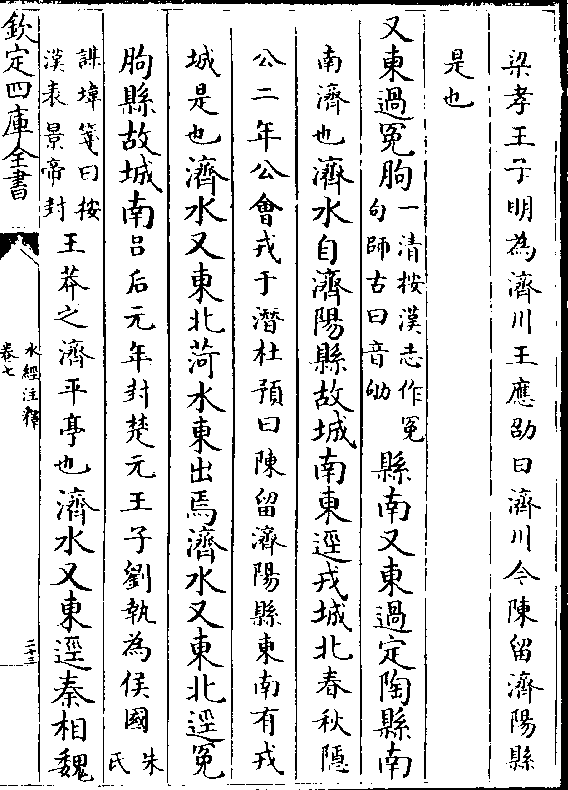 梁孝王子明為濟川王應劭曰濟川今陳留濟陽縣
是也
又東過冤朐一清按漢志作冤句師古曰音劬縣南又東過定陶縣南
南濟也濟水自濟陽縣故城南東逕戎城北春秋隱
公二年公會戎于潛杜預曰陳留濟陽縣東南有戎
城是也濟水又東北菏水東出焉濟水又東北逕冤
朐縣故城南呂后元年封楚元王子劉執為侯國朱氏
謀㙔箋曰按漢表景帝封王莽之濟平亭也濟水又東逕秦相魏
欽定四庫全書
水經注釋
卷七
二十三